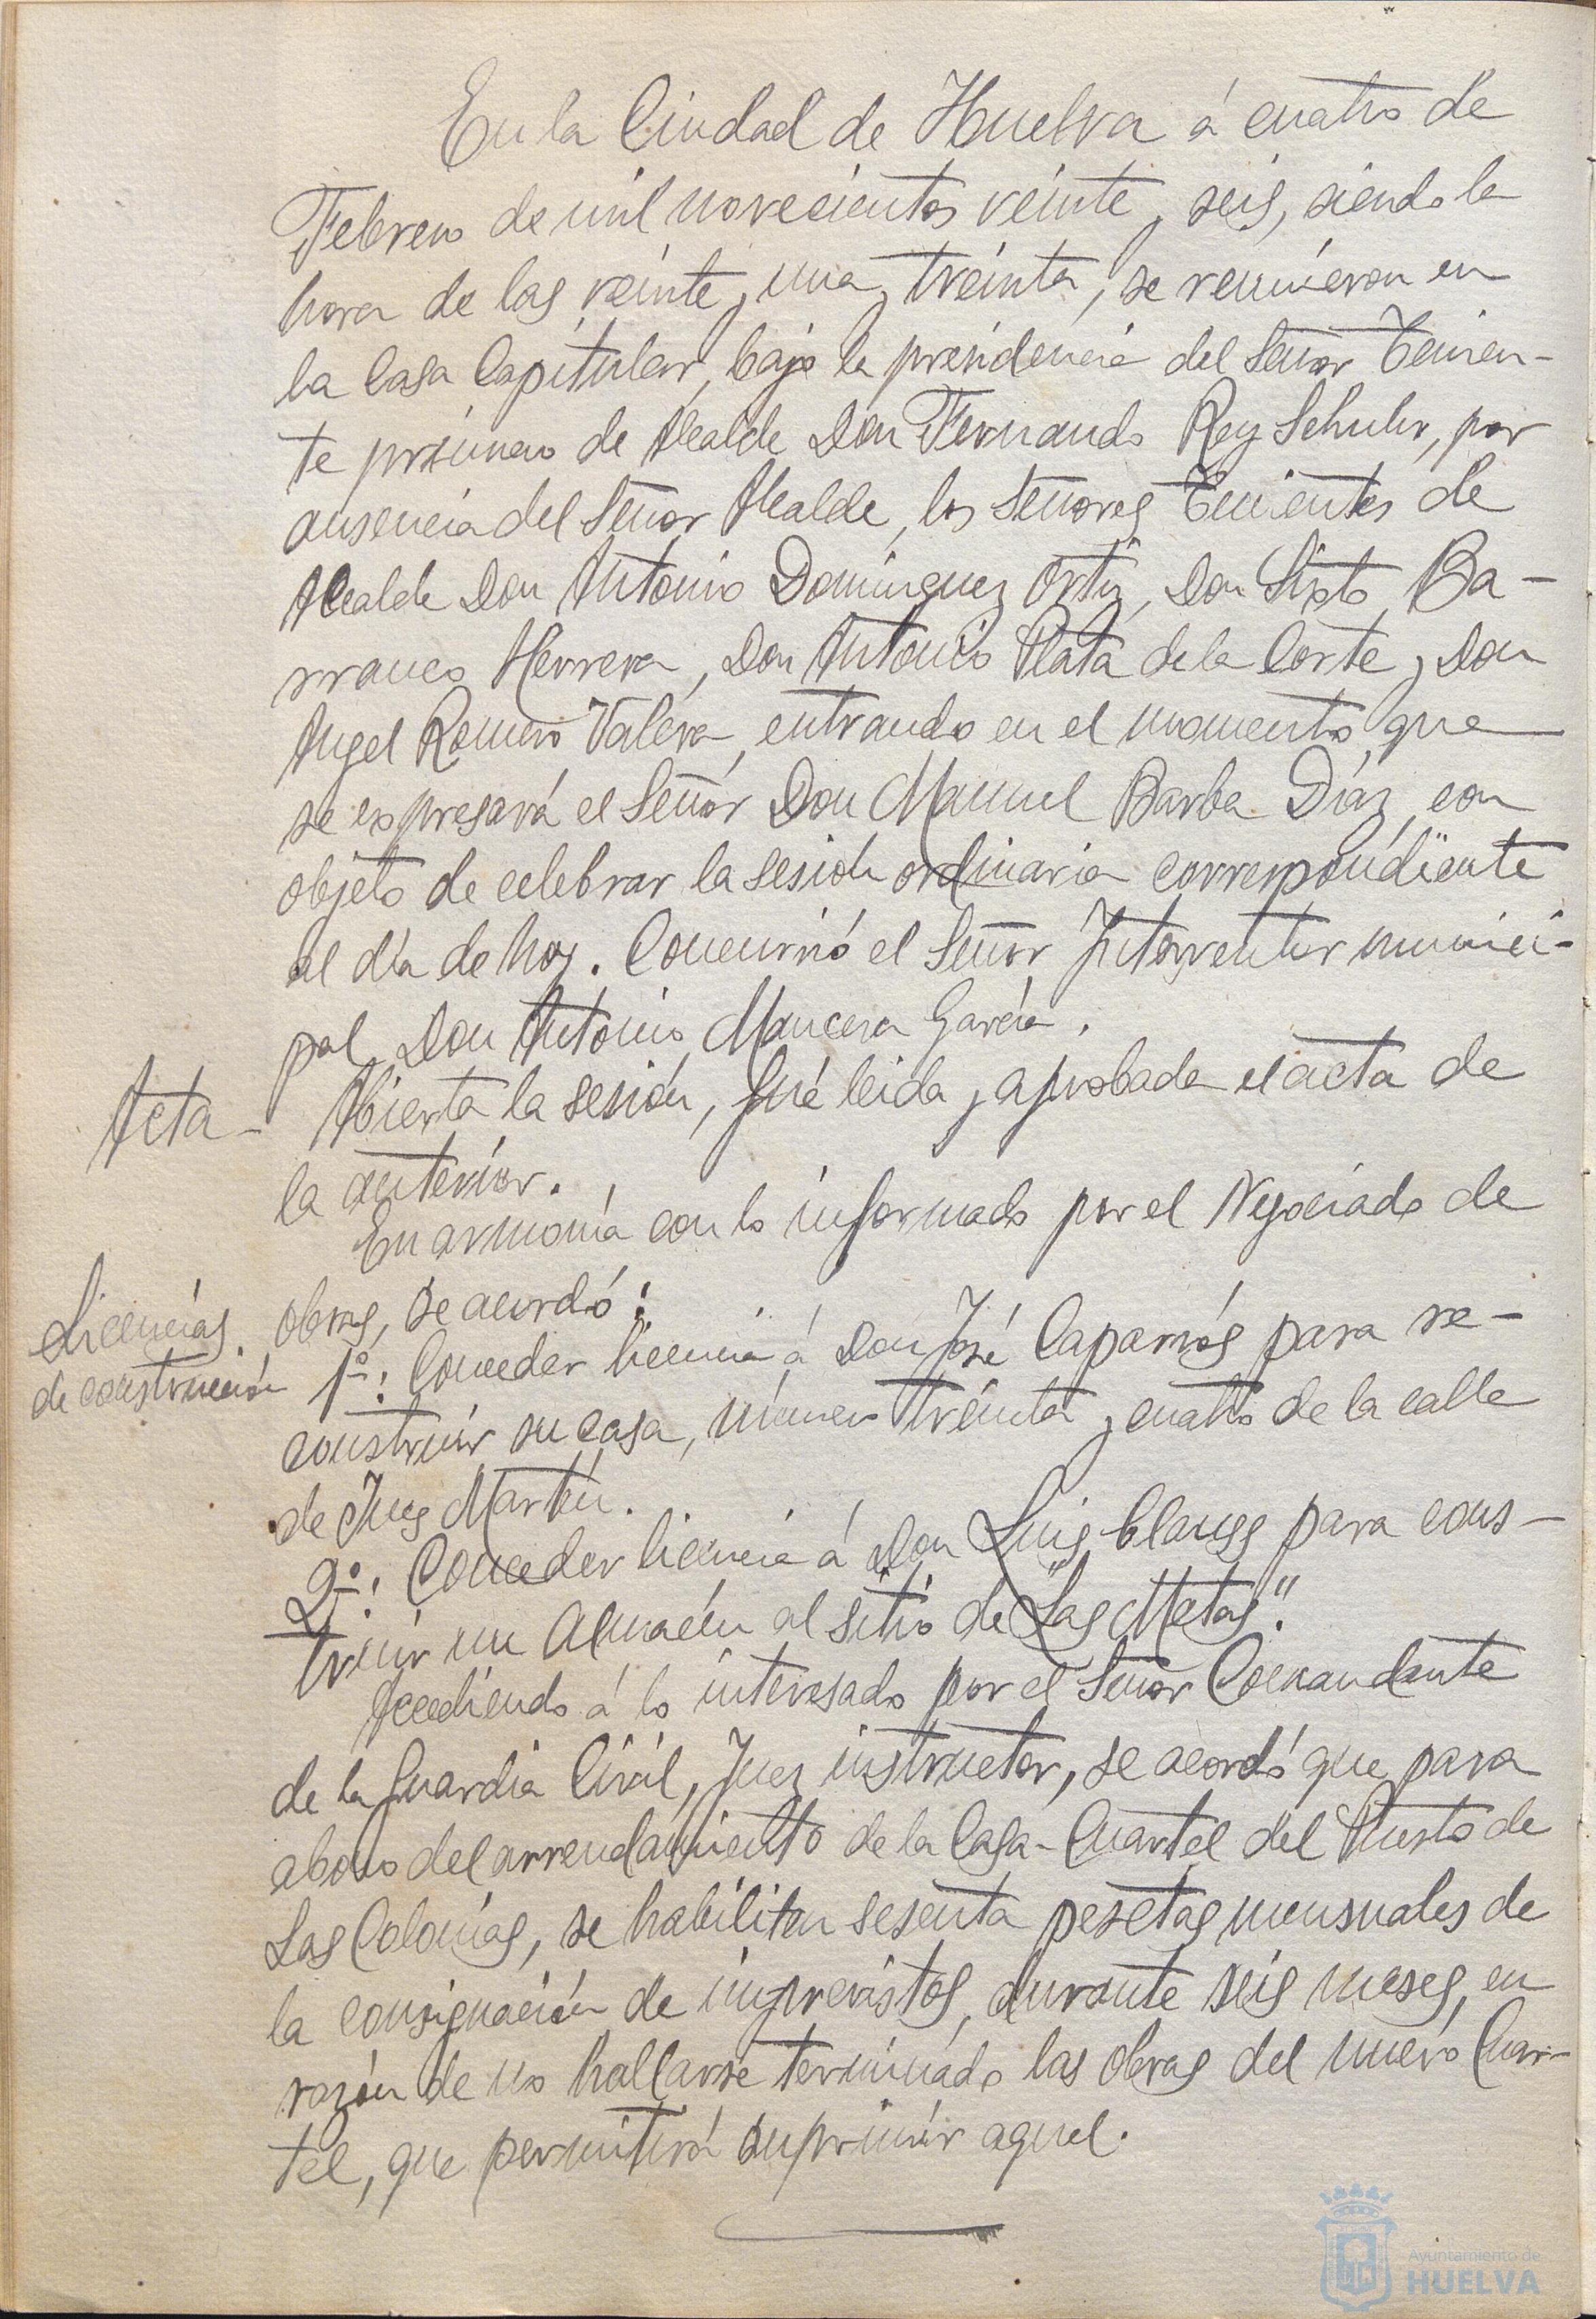 En la Ciudad de Huelva á cuatro de
Febrero de mil novecientos veinte y seis, siendo la
hora de las veinte y una y treinta, se reunieron en
la Casa Capitular, bajo la presidencia del Señor Tenien-
te primero de Alcalde Don Fernando Rey Schuler, por
ausencia del Señor Alcalde, los Señores Tenientes de
Alcalde Don Antonio Dominguez Ortiz, Don Sixto Ba-
rranco Herrera, Don Antonio Plata de la Corte y Don
Angel Romero Valera, entrando en el momento que
se expresará el Señor Don Manuel Barba Díaz, con
objeto de celebrar la sesión ordinaria correspondiente
al día de hoy. Concurrió el Señor Interventor munici-
pal, Don Antonio Mancera García.
Acta-
Abierta la sesión, fué leida y aprobada el acta de
la anterior.
En armonía con lo informado por el Negociado de
obras, se acordó:
Licencias
de construcción
1º: Conceder licencia á Don José Caparrós para re-
construir su casa, número treinta y cuatro de la calle
de Ines Martín.
2º: Conceder licencia á Don Luis Clauss para cons-
truir un Almacén al sitio de "Las Metas".
Accediendo á lo interesado por el Señor Comandante
de la Guardia Civil, Juez instructor, se acordó que para
abono del arrendamiento de la Casa-Cuartel del Puesto de
Las Colonias, se habiliten sesenta pesetas mensuales de
la consignación de imprevistos, durante seis meses, en
razón de no hallarse terminado las obras del nuevo Cuar-
tel, que permitirá suprimir aquel.
Ayuntamiento de
HUELVA